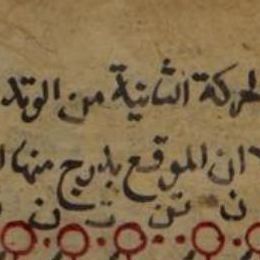 لحركة الثانية من الوتد
ان الموقع بدرج منها
ن تن ت ن